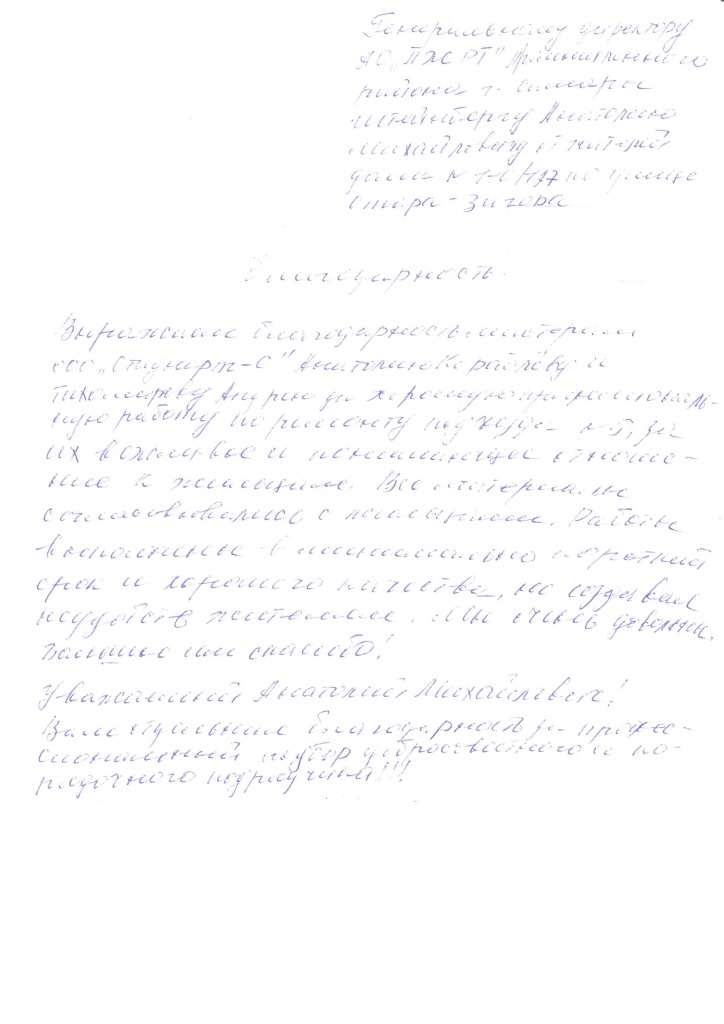 Генеральному директору
АО "ПЖРТ" Промышленного
района г. Самары
Штейнбергу Анатолию
Михайловичу от жителей
дома по улице
Стара-Загора
Благодарность.
Выражаем благодарность мастерам
ООО Анатолию и
Андрею за хорошую профессиональ-
ную работу по ремонту подъезда №5, за
их вежливое и понимающее отноше-
ние к жильцам. Все материалы
согласовывались с жильцами. Работы
выполнены в минимально короткий
срок и хорошего качества, не создавая
неудобств жителям. Мы очень довольны.
Большое им спасибо!
Уважаемый Анатолий Михайлович!
Вам отдельная благодарность за профес-
сиональный подбор добросовестного и по-
рядочного подрядчика!!!